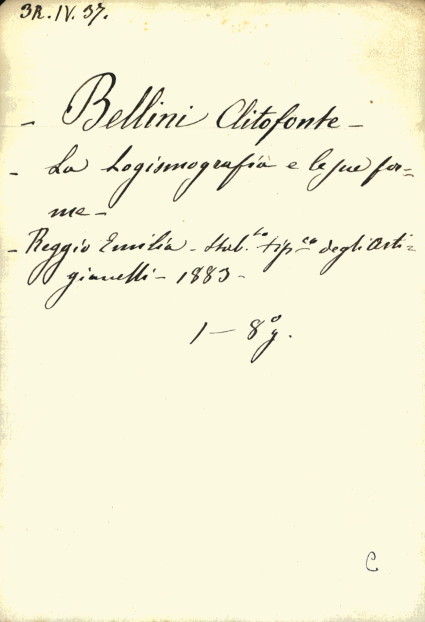 3R.IV.37.
- Bellini Clitofonte -
- La Logismografia e le sue for=
me -
- Reggio Emilia - Stab.to tip.co degli Arti=
gianelli - 1883 -
1 - 8º g.
C